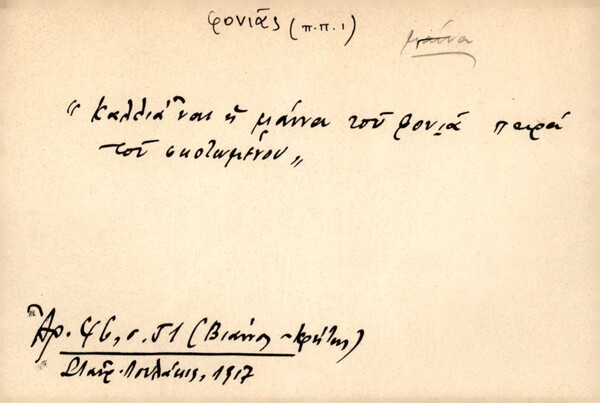 φονιᾶς (π.π. 1)
μάννα
“ Καλλιά 'ναι ἡ μάννα τοῦ φονιᾶ παρά
τοῦ σκοτωμένου „
Ἀρ. 46, σ. 51 (Βιάννος - Κρήτης)
1917